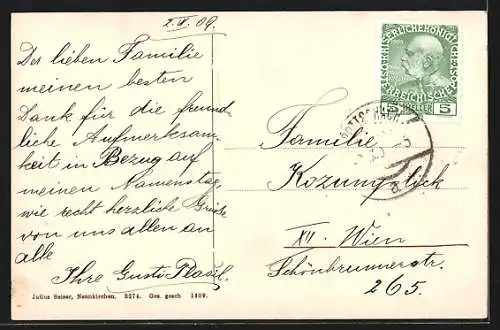 2.V. 09.
Der lieben Familie
meinen besten
Dank für die freund
liche Aufmerksam
keit in Bezug auf
meinen Namenstag,
wie recht herzliche Grüße
von uns allen an
alle
Ihre Gusti
Julius Seiser, Neunkirchen. 3274. Ges. gesch. 1909.
KAISERLICHEKÖNIGLICHE
ÖSTERREICHISCHE POST
5 HELLER 5
Familie
Kozumplick
XII. Wien
Schönbrunnerstr.
265.